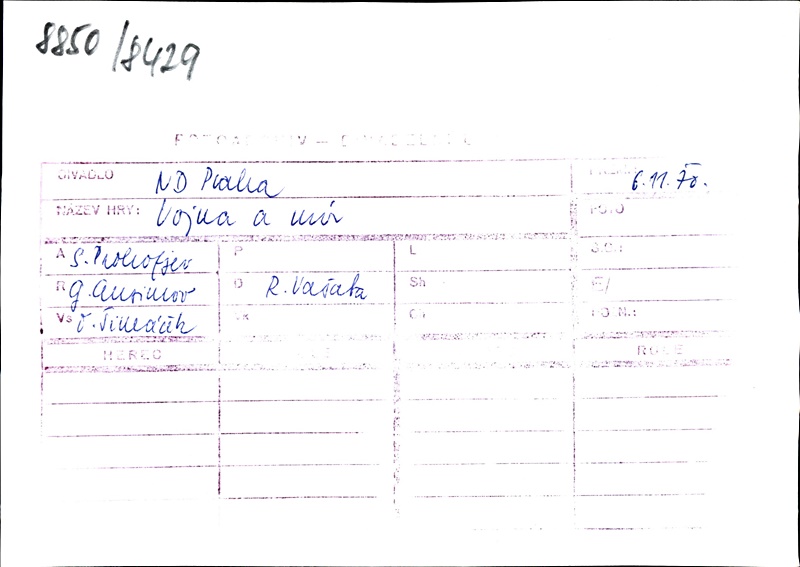 8850/8429
DIVADLO ND Praha 6.11.70.
NÁZEV HRY: Vojna a mír FOTO
A S. Prokofjev P L Š.C.:
R G. Ansimov D R. Vašata Sh
Vs O. Šimáček
HEREC ROLE